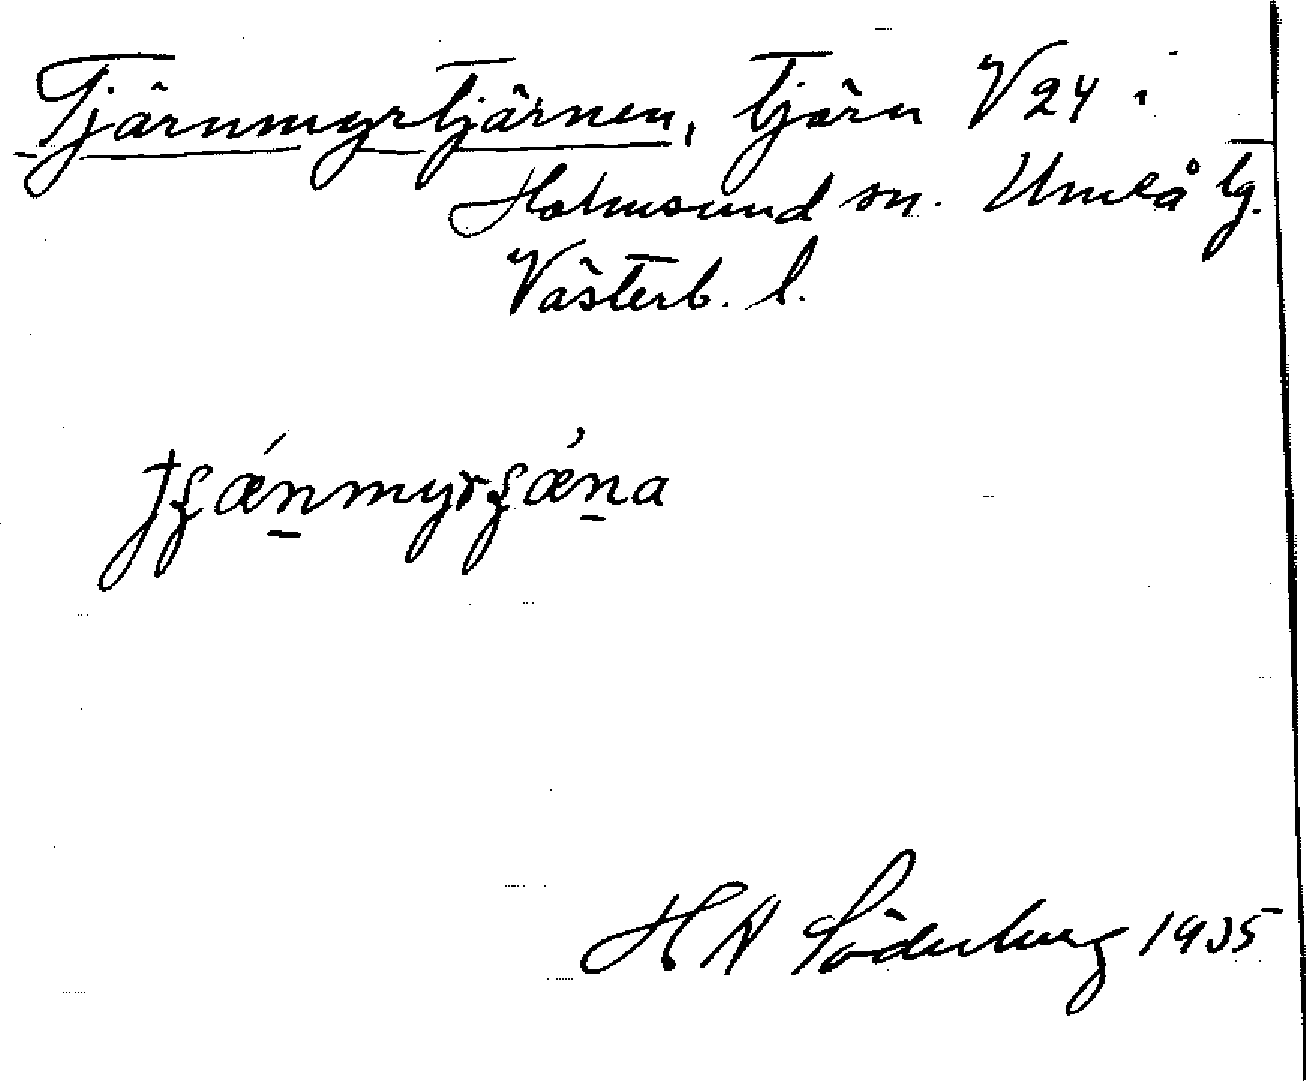 Tjärnmyrtjärnen, tjärn V24 i
Holmsund sn. Umeå tg.
Västerb. l.
H A Söderberg 1935